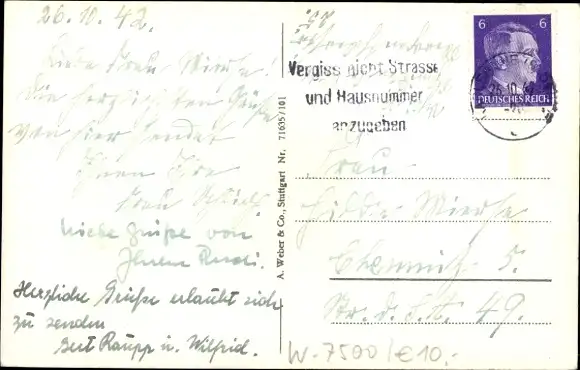 26.10.42.
Liebe Frau Mierse!
Die herzlichsten Grüße
von hier sendet
Ihnen Ihre
Frau
Liebe Grüße von
Ihrem Rudi.
Herzliche Grüße erlaubt sich
zu senden
Bert Raupp u. Wilfrid.
A. Weber & Co., Stuttgart Nr. 71635/101
Vergiss nicht Strasse
und Hausnummer
anzugeben
6 6
DEUTSCHES REICH
Frau
Hilde Mierse
Chemnitz 5.
Str. d. S.A. 49.
W-7500/€10.-